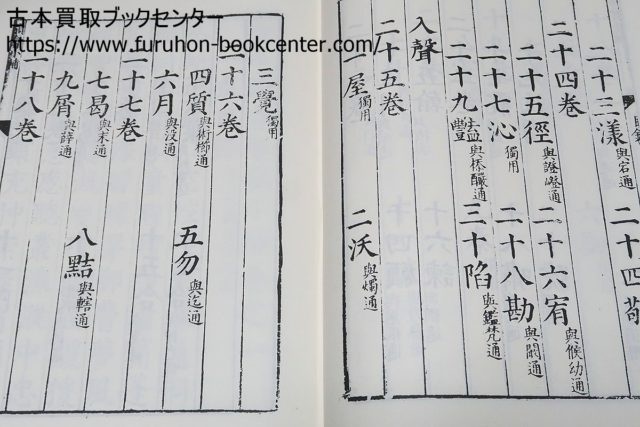 古本買取ブックセンター
https://www.furuhon-bookcenter.com/
二十三漾與宕通 二十四敬
二十四卷
二十五徑與證嶝通 二十六宥與候幼通
二十七沁獨用 二十八勘與闞通
二十九豔與㮇釅通 三十陷與鑑梵通
入聲
二十五卷
一屋獨用 二沃與燭通
三覺獨用
二十六卷
四質與術櫛通 五勿與迄通
六月與沒通
二十七卷
七曷與末通 八黠與轄通
九屑與薛通
二十八卷